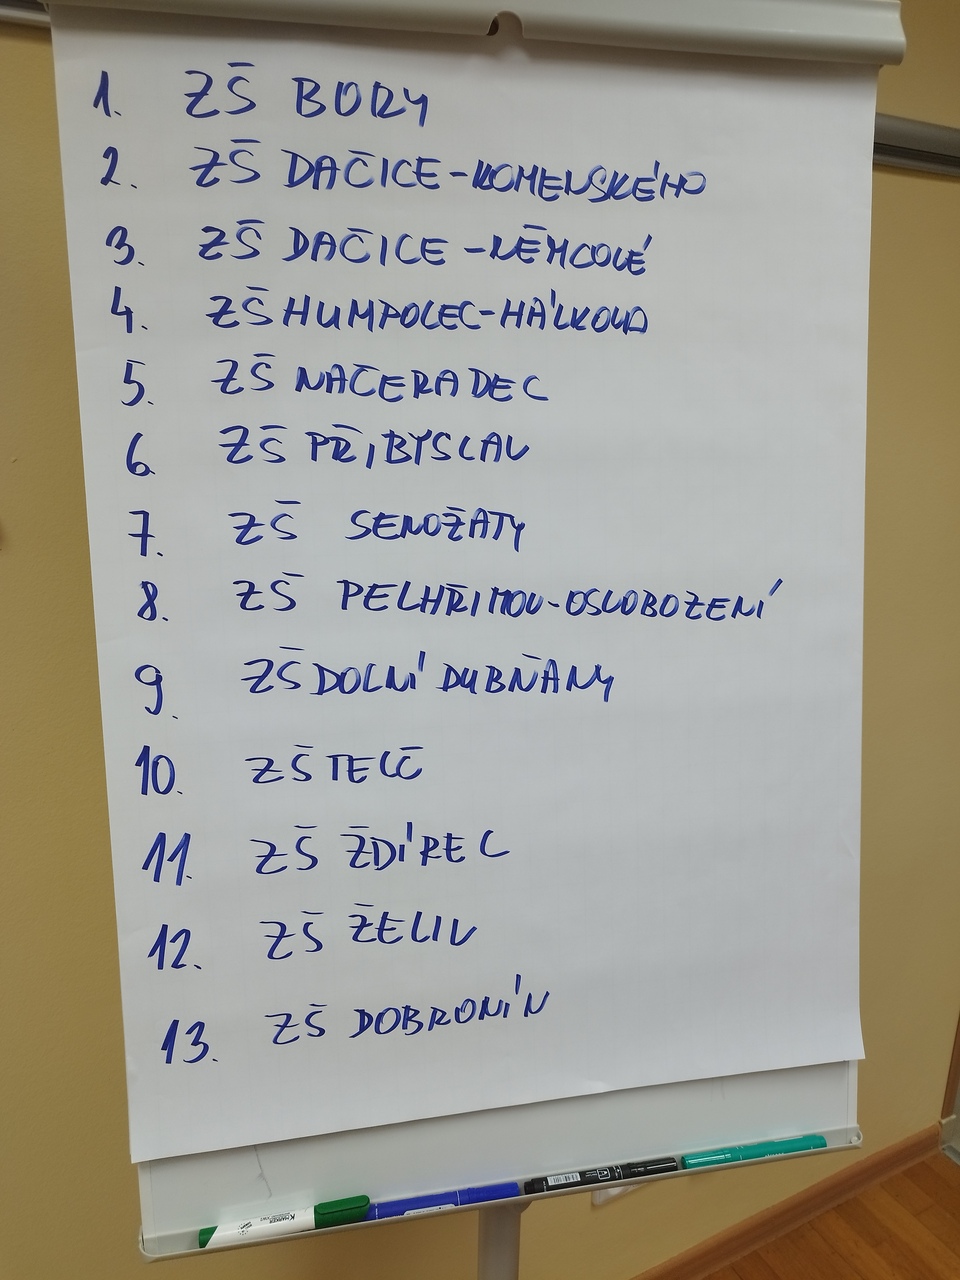 1. ZŠ BORY
2. ZŠ DAČICE-KOMENSKÉHO
3. ZŠ DAČICE-NĚMCOVÉ
4. ZŠ HUMPOLEC-HÁLKOVA
5. ZŠ NAČERADEC
6. ZŠ PŘIBYSLAV
7. ZŠ SENOŽATY
8. ZŠ PELHŘIMOV-OSVOBOZENÍ
9. ZŠ DOLNÍ DUBŇANY
10. ZŠ TELČ
11. ZŠ ŽDÍREC
12. ZŠ ŽELIV
13. ZŠ DOBRONÍN
MARKER